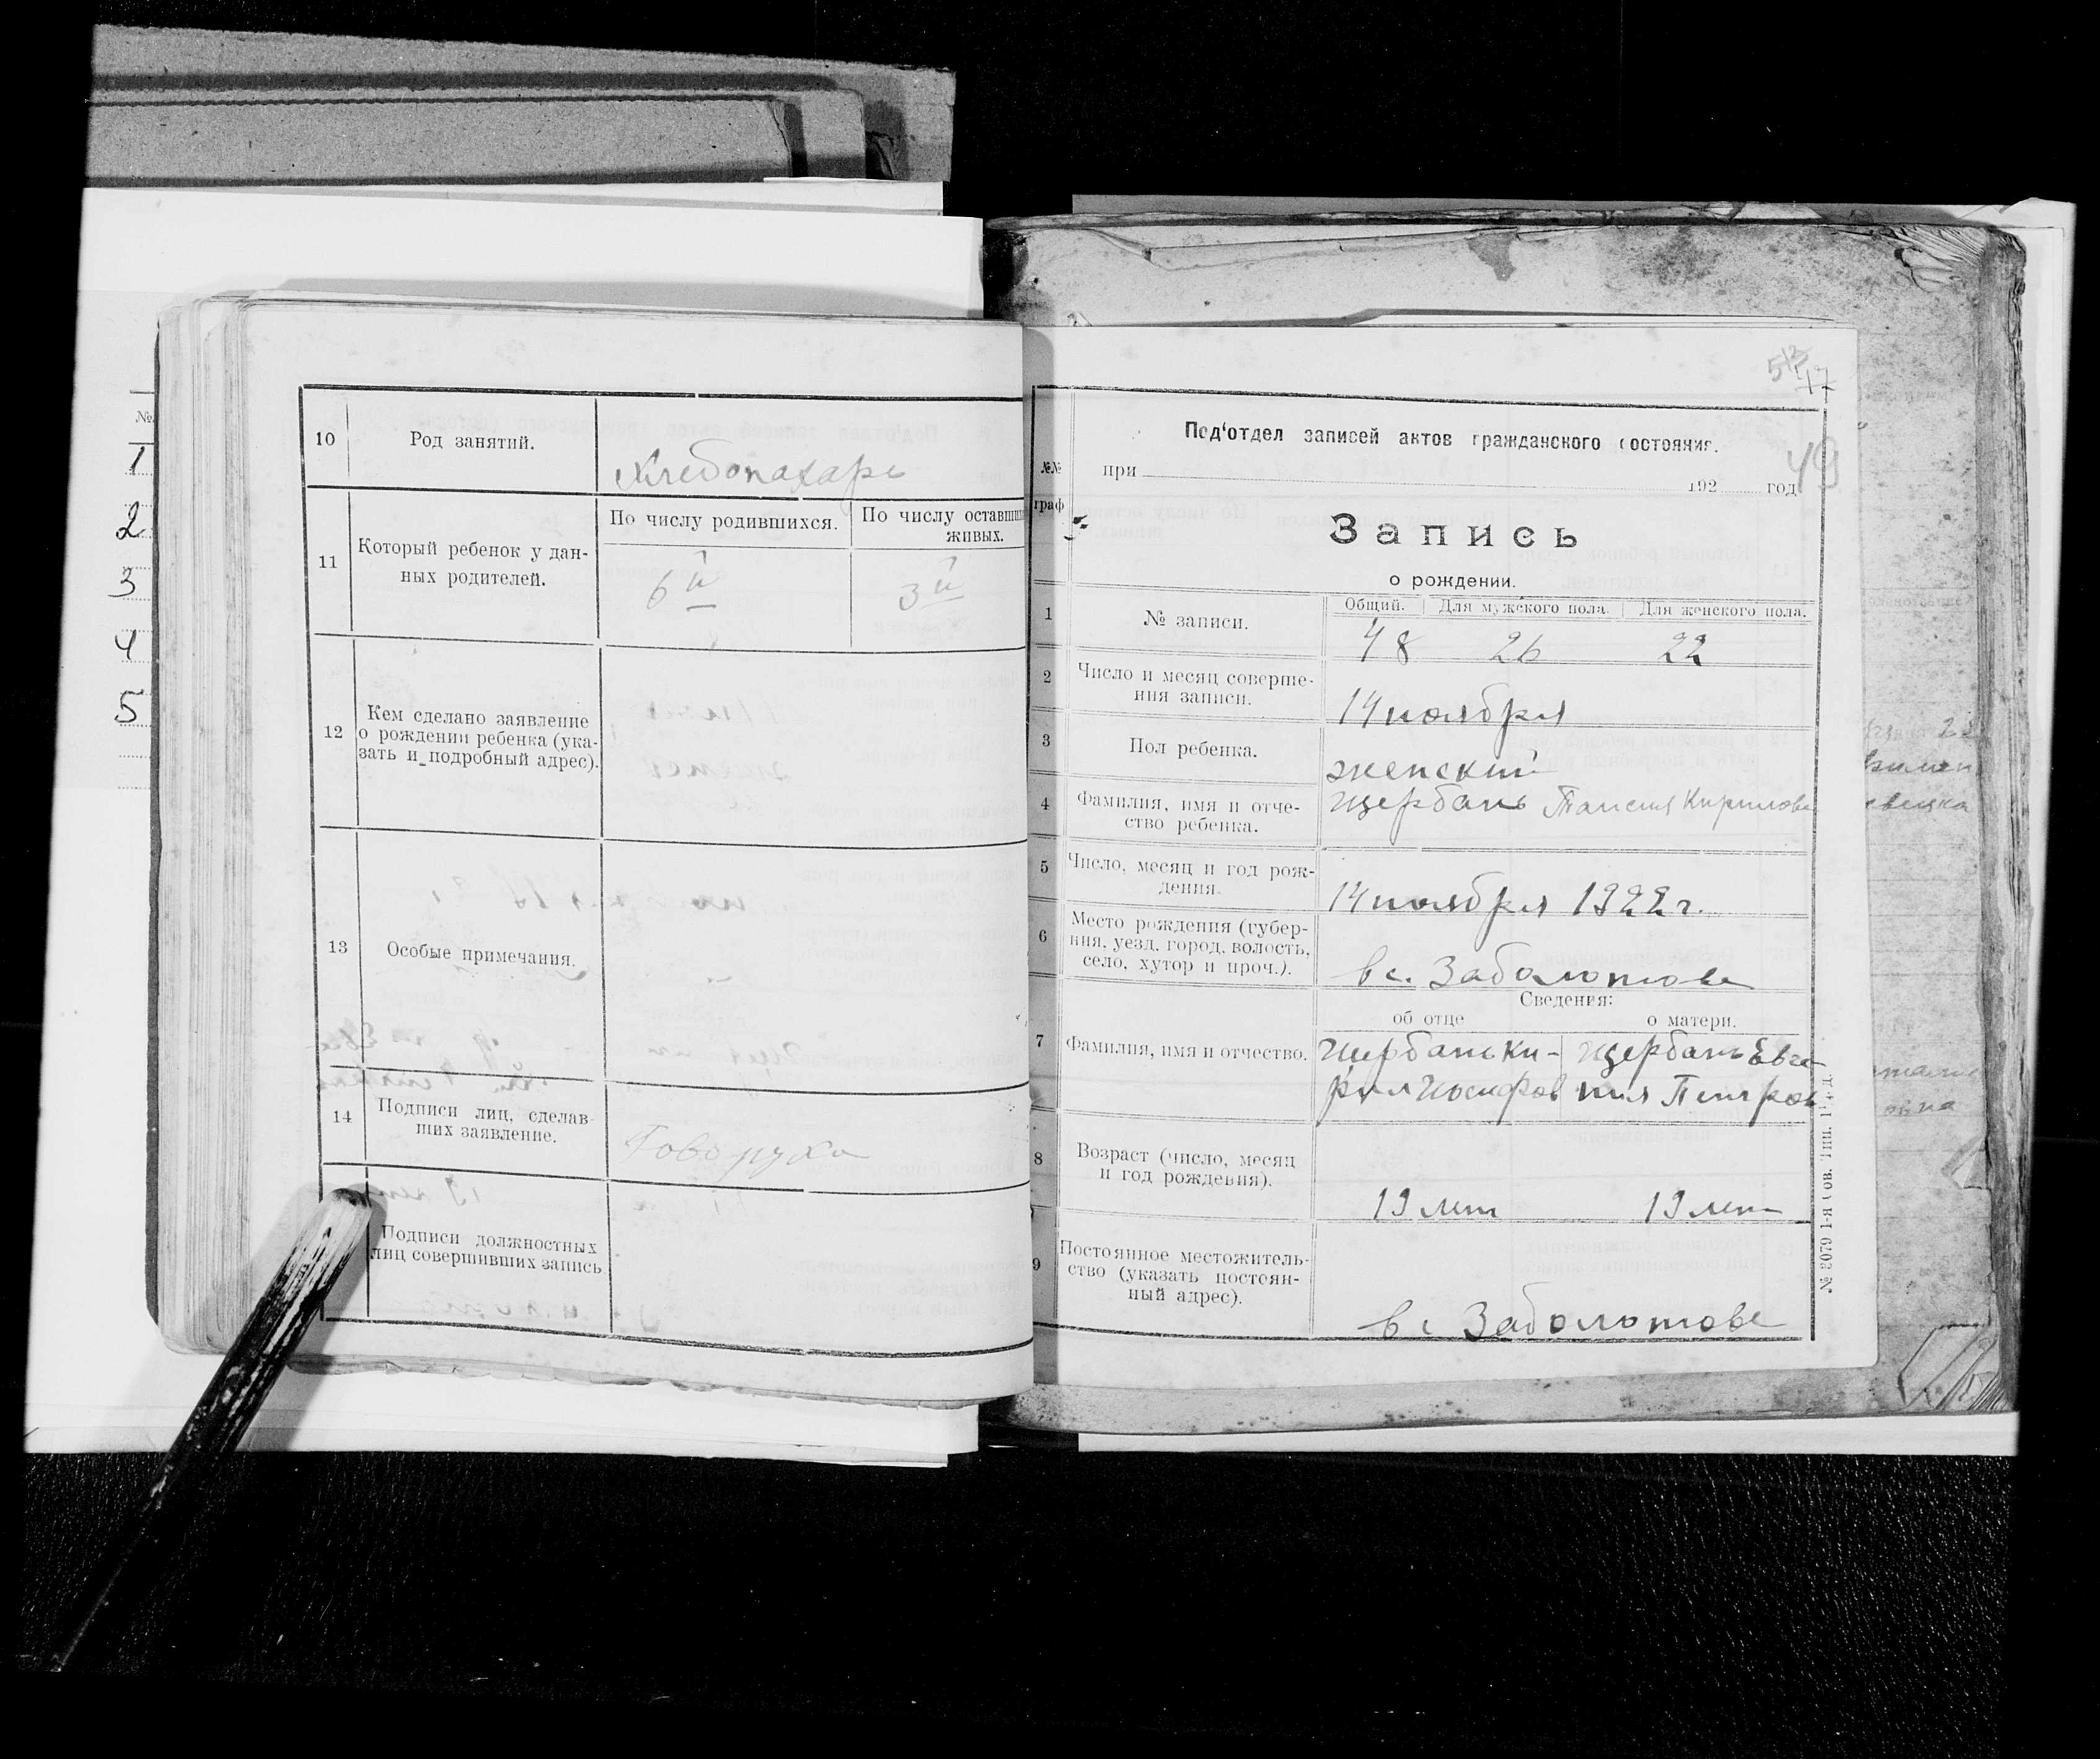 №
1
2
3
4
5
10
Род занятий.
Хлебопахарь
11
Который ребенок у дан-
ных родителей.
По числу родившихся.
По числу оставши
живых.
6й
3й
12
Кем сделано заявление
о рождении ребенка (ука-
зать и подробный адрес).
13
Особые примечания.
14
Подписи лиц, сделав-
ших заявление.
Говоруха
Подписи должностных
лиц совершивших запись
49
№№
граф
Под‘отдел записей актов гражданского состояния.
при 192 год
Запись
о рождении.
1
№ записи.
Общий. Для мужского пола. Для женского пола.
48 26 22
2
Число и месяц соверше-
ния записи.
14 ноября
3
Пол ребенка.
женский
4
Фамилия, имя и отче-
ство ребенка.
Щербань Таисия Кирилова
5
Число, месяц и год рож-
дения.
14 ноября 1922 г.
6
Место рождения (губер-
ния, уезд, город, волость,
село, хутор и проч.).
в с. Заболотове
Сведения:
об отце
о матери.
7
Фамилия, имя и отчество.
Щербань Ки-
рил Иосифов
Щербань Евге
ния Петров
8
Возраст (число, месяц
и год рождения).
19 лет
19 лет
9
Постоянное местожитель-
ство (указать постоян-
ный адрес).
в с Заболотове